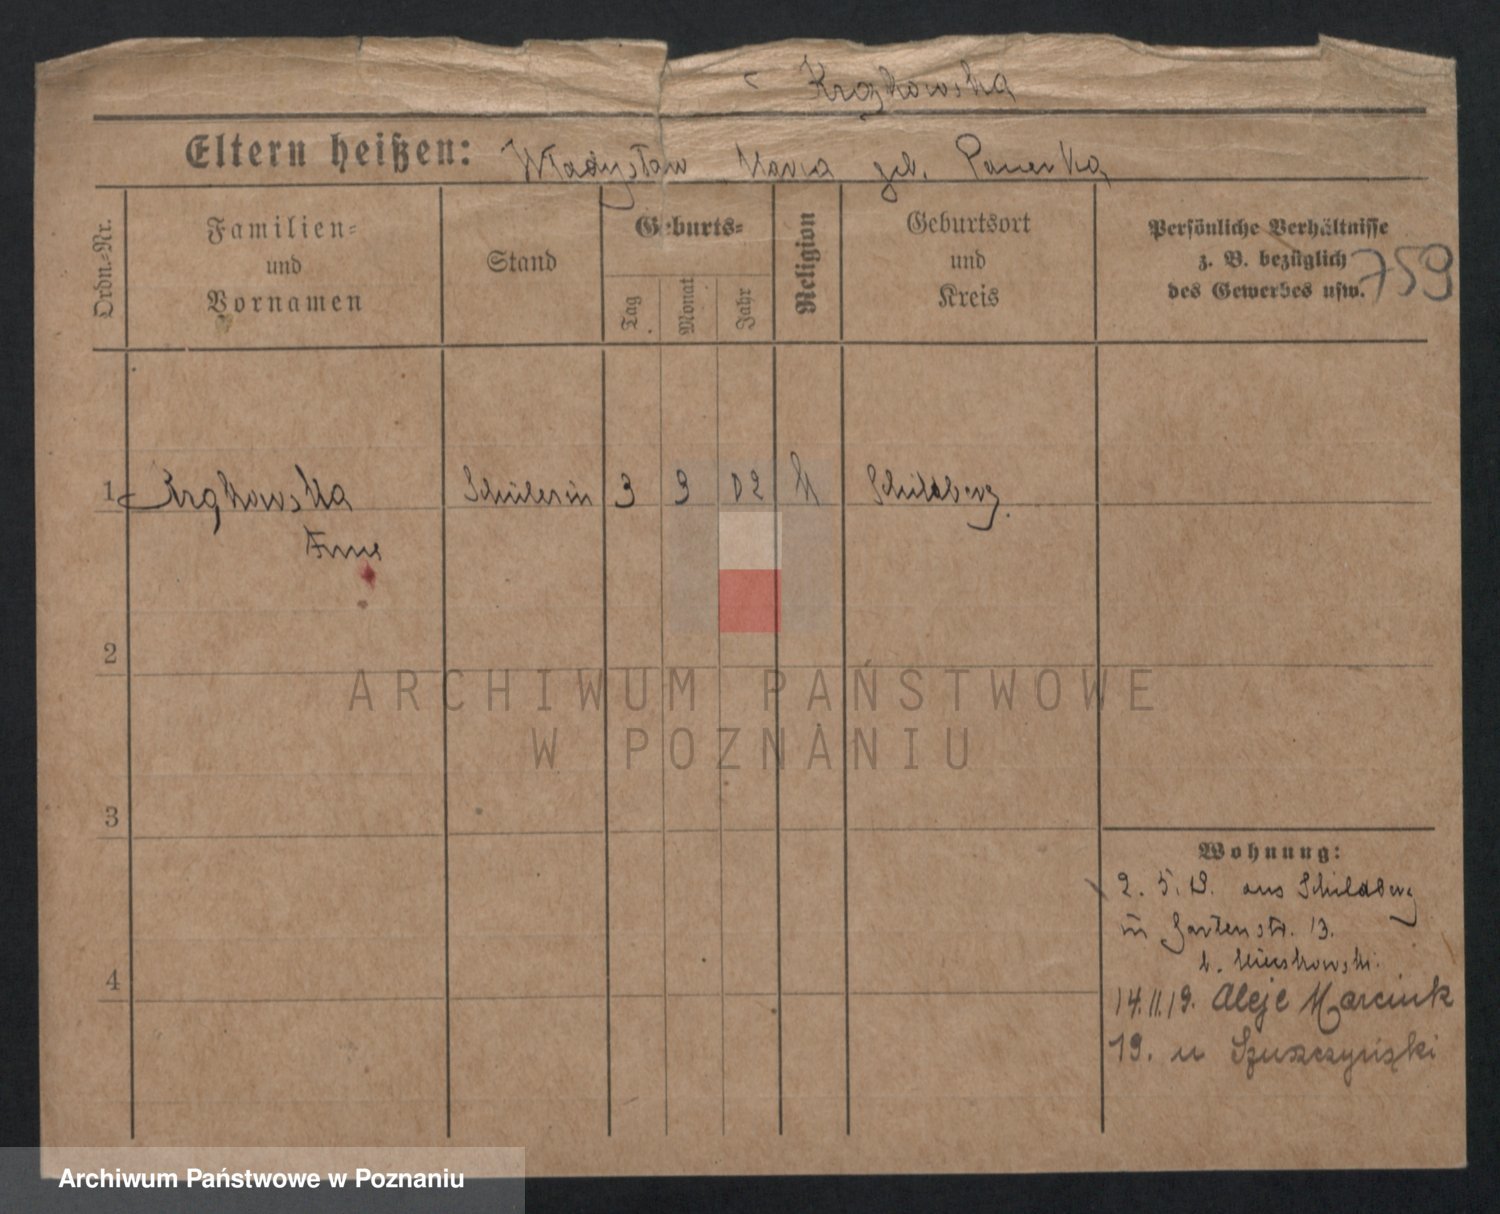 Eltern heißen: Władysław Maria geb.
Ordn.-Nr.
Familien-
und
Vornamen
Stand
Geburts-
Tag
Monat
Jahr
Religion
Geburtsort
und
Kreis
Persönliche Verhältnisse
z. B. bezüglich
des Gewerbes usw.
759
1
Schülerin
3
9
02
k
Schildberg.
2
3
4
Wohnung:
2. 5. 19. aus Schildberg
in Gartenstr. 13.
b.
14.11.19. Aleje Marcink
19. u
ARCHIWUM PAŃSTWOWE
W POZNANIU
Archiwum Państwowe w Poznaniu